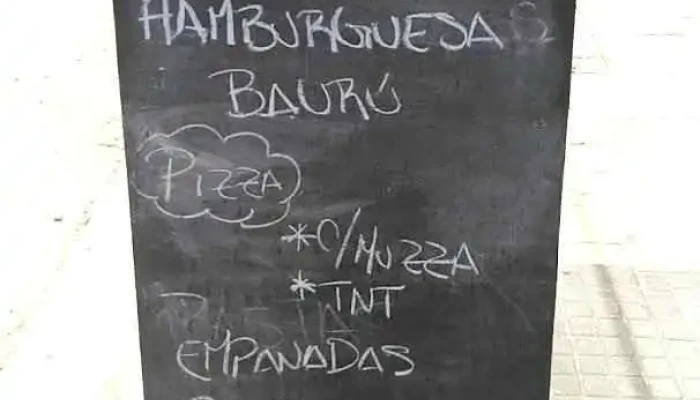 HAMBURGUESAS
BAURÚ
PIZZA
*C/MUZZA
*TNT
EMPANADAS